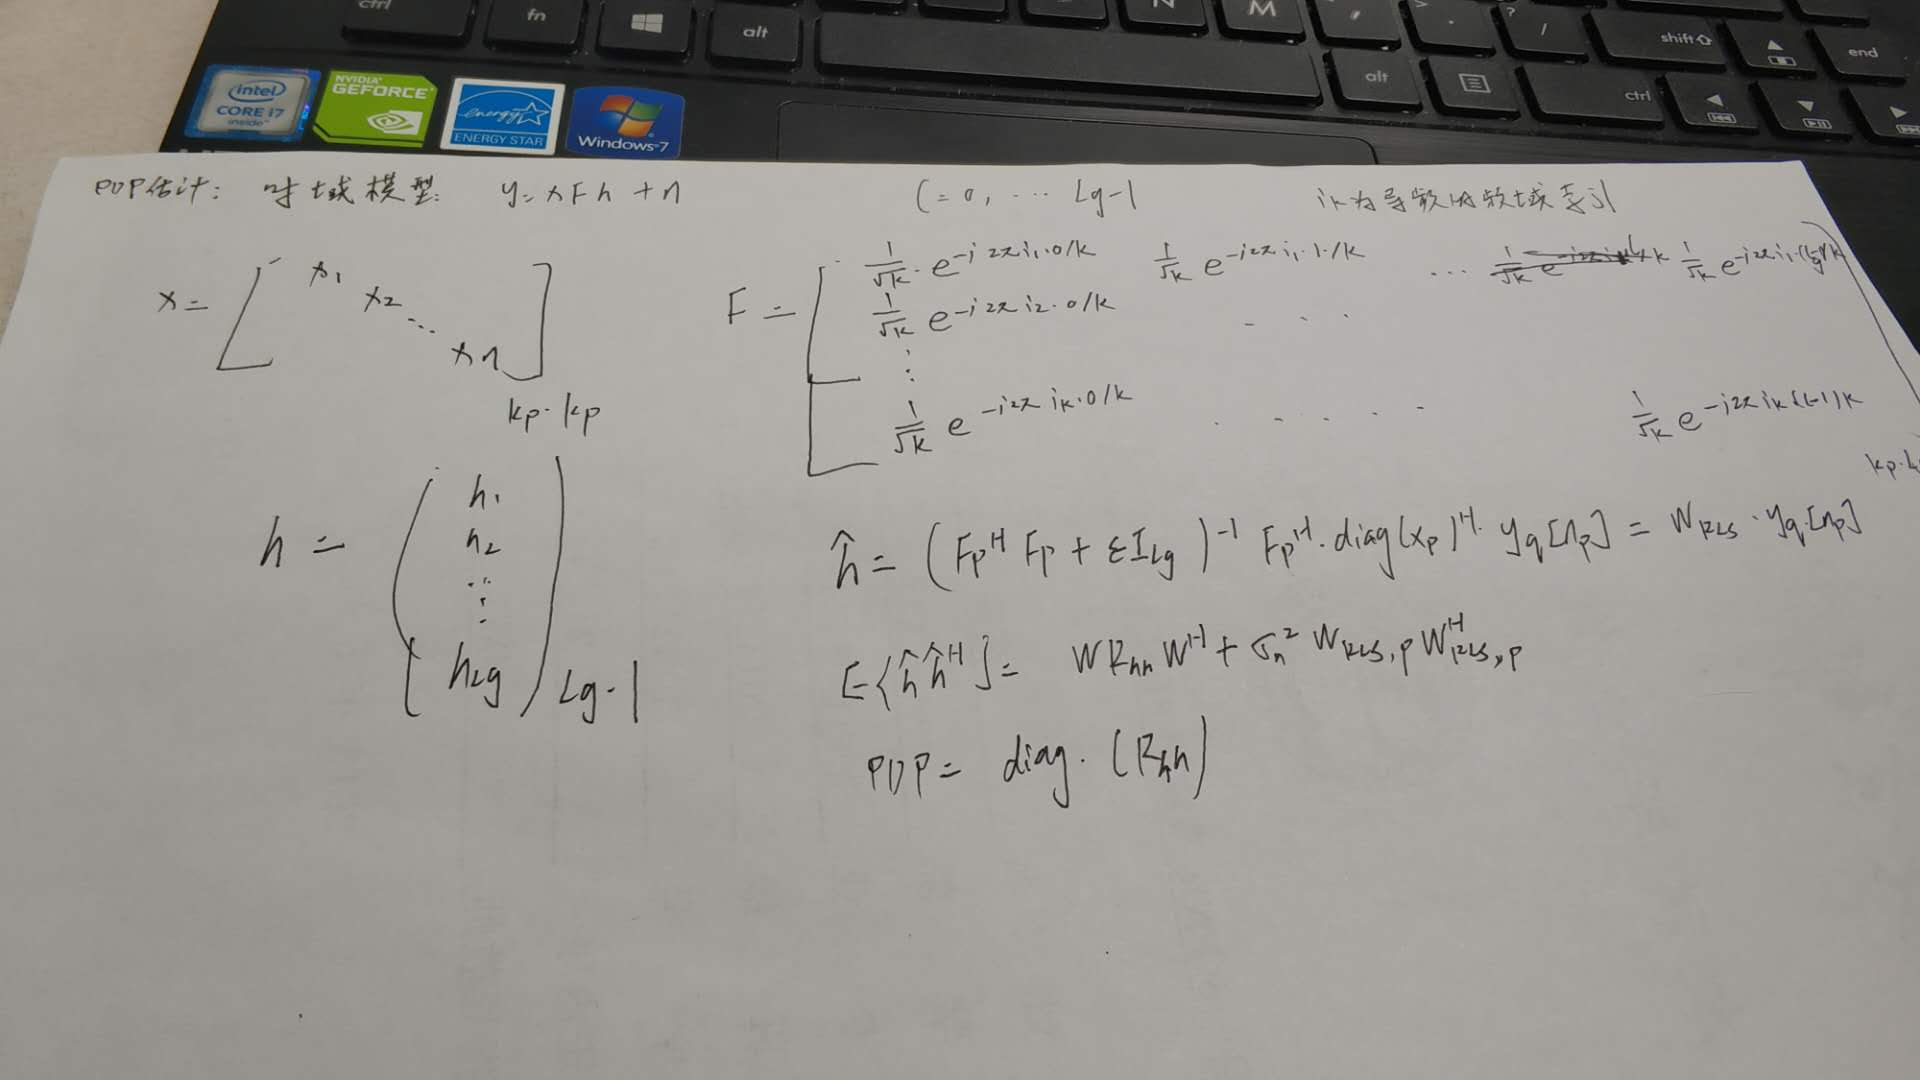 ctrl fn alt N M , > . ? / shift⇧ end
alt ctrl
intel CORE i7 inside
NVIDIA GEFORCE
energy ENERGY STAR
Windows 7
PDP估计: 时域模型: y=xFh+n l=0, ... Lg-1 ik为导频的频域索引
x= [x1 x2 ... xn] kp·kp
F= [1/√k·e^{-j2πi1·0/k} 1/√k e^{-j2πi1·1/k} ... 1/√k e^{-j2πi1·(Lg-1)/k}
1/√k e^{-j2πi2·0/k} ...
⋮
1/√k e^{-j2πik·0/k} .... 1/√k e^{-j2πik(L-1)k}]
h = (h1 h2 ⋮ hLg) Lg·1
ĥ= (Fp^H Fp + εI_Lg)^{-1} Fp^H·diag(xp)^H·yq[np] = W_RLS·yq[np]
E{ĥĥ^H}= W Rhh W^H + σn² W_RLS,p W^H_RLS,p
PDP= diag·(Rhh)